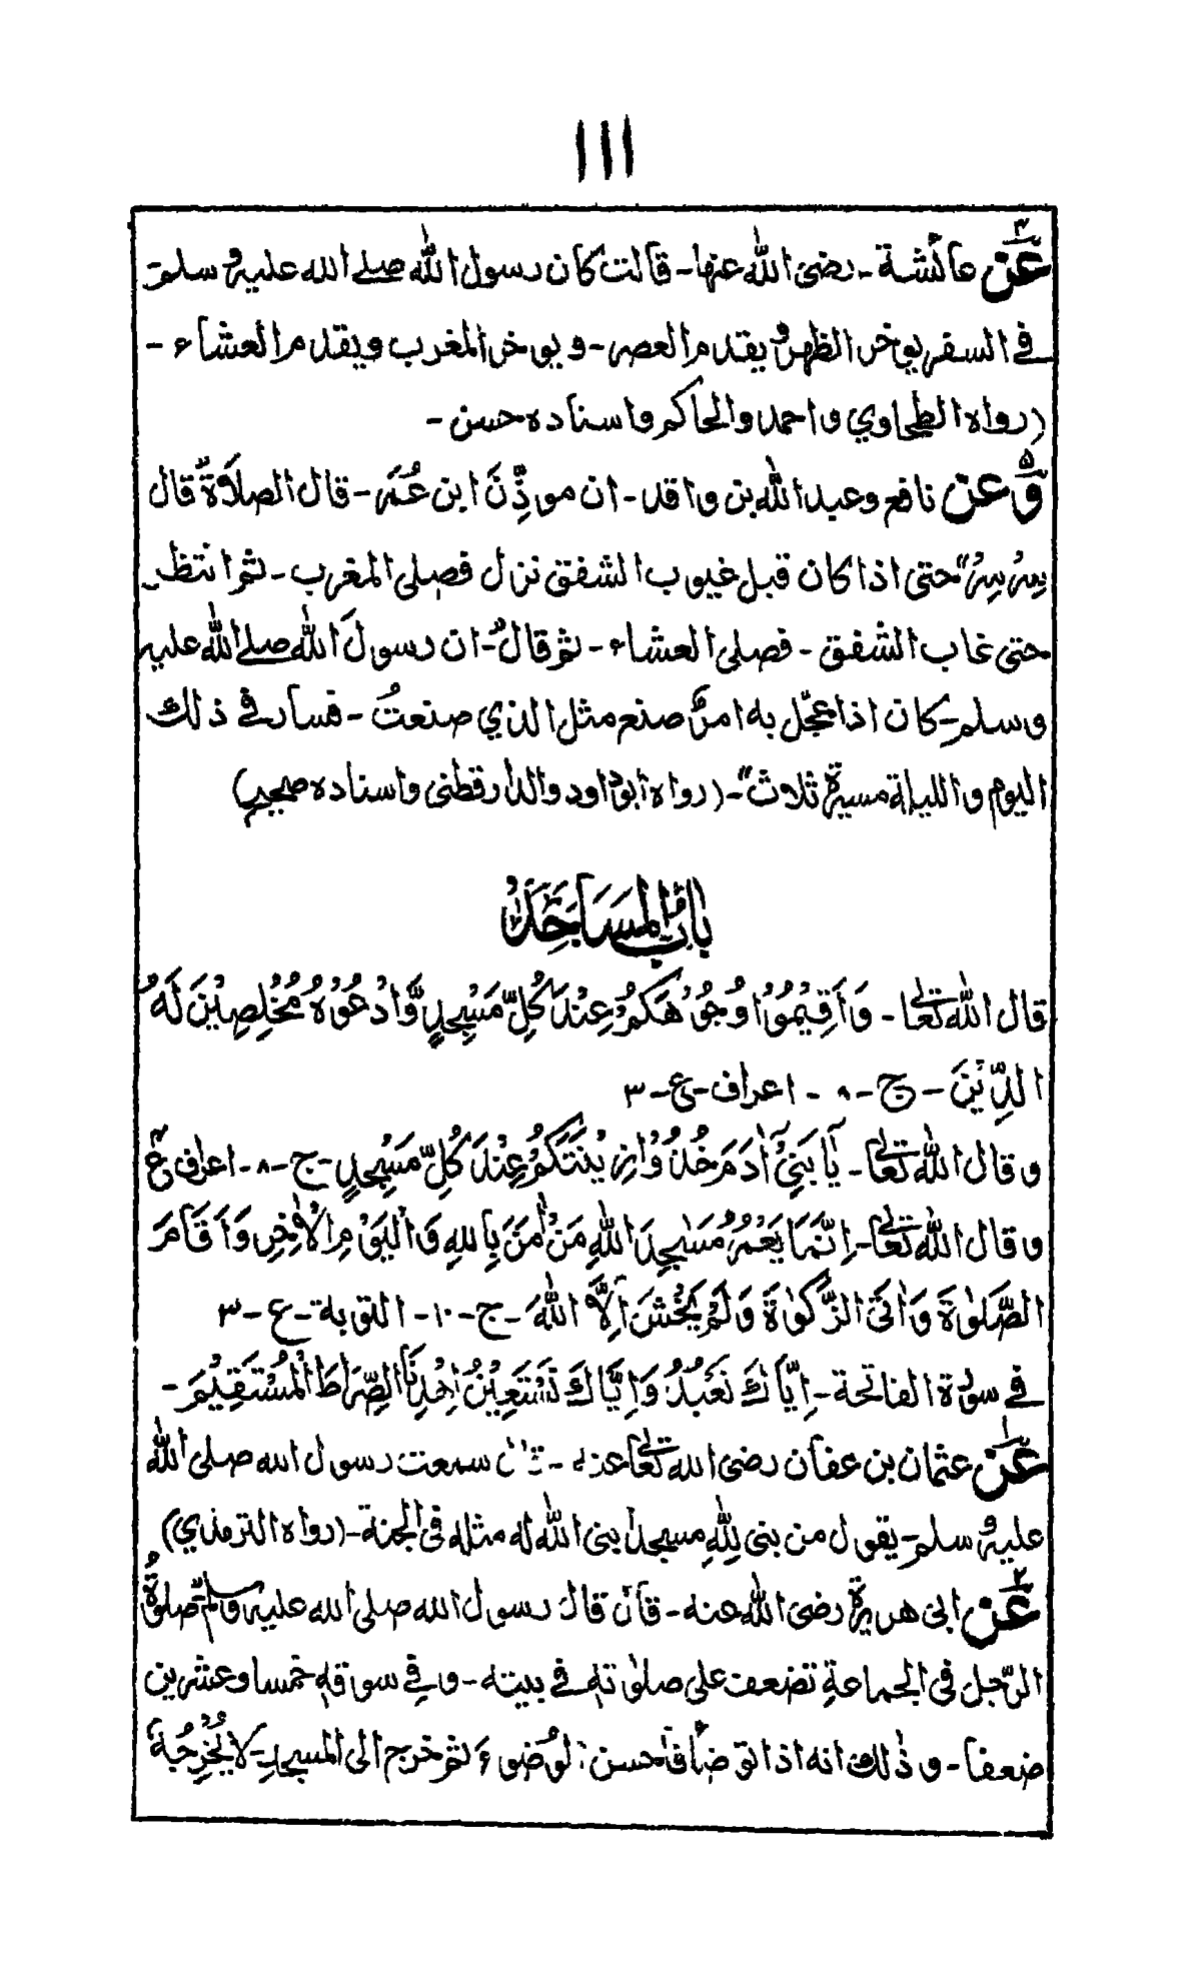 ١١١
عن ٤ عائشة - رضى الله عنها - قالت كان رسول الله صلے الله عليه و سلم
فے السفر يوخر الظهر و يقدم العصر - و يوخر المغرب ويقدم العشاء -
(رواه الطحاوي واحمد والحاكم واسناده حسن -
وعن ٥ نافع وعبد الله بن واقد - ان موذِّنَ ابن عُمَر - قال الصلاةُ قال
سِرْ سِرْ" حتى اذا كان قبل غيوب الشفق نزل فصلى المغرب - ثم انتظر
حتى غاب الشفق - فصلى العشاء - ثم قال - ان رسولَ الله صلے الله عليه
وسلم - كان اذا عجّل به امرٌ صنع مثل الذي صنعتُ - فسار فے ذلك
اليوم والليلة مسيرة ثلاث" - (رواه أبو داود والدارقطنى واسناده صحيح)
باب المَسَاجِد
قال الله تعالٰى - وَاَقِيْمُوْا وُجُوْهَكُمْ عِنْدَ كُلِّ مَسْجِدٍ وَّادْعُوْهُ مُخْلِصِيْنَ لَهُ
الدِّيْنَ - ج - ٨ - اعراف - ع - ٣
وقال الله تعالٰى - يَا بَنِيْٓ اٰدَمَ خُذُوْا زِيْنَتَكُمْ عِنْدَ كُلِّ مَسْجِدٍ - ج - ٨ - اعراف ع ٣
وقال الله تعالٰى - اِنَّمَا يَعْمُرُ مَسٰجِدَ اللهِ مَنْ اٰمَنَ بِاللهِ وَالْيَوْمِ الْاٰخِرِ وَاَقَامَ
الصَّلٰوةَ وَاٰتَى الزَّكٰوةَ وَلَمْ يَخْشَ اِلَّا اللهَ - ج - ١٠ - التوبة - ع - ٣
فے سورة الفاتحة - اِيَّاكَ نَعْبُدُ وَاِيَّاكَ نَسْتَعِيْنُ اِهْدِنَا الصِّرَاطَ الْمُسْتَقِيْمَ -
عن ١ عثمان بن عفان رضى الله تعالٰى عنه - قال سمعت رسول الله صلى الله
عليه و سلم - يقول من بنى لِلّٰهِ مسجداً بنى الله له مثله فى الجنة - (رواه الترمذي)
عن ٢ ابى هريرة رضى الله عنه - قال قال رسول الله صلى الله عليه وسلم صلوةُ
الرّجل فى الجماعةِ تضعف على صلوٰتهٖ فے بيته - وفے سوقهٖ خمسا وعشرين
ضعفا - وذٰلك انه اذا توضأ فاحسن الوُضوءَ ثم خرج الى المسجدِ - لا يُخْرِجُهٗ